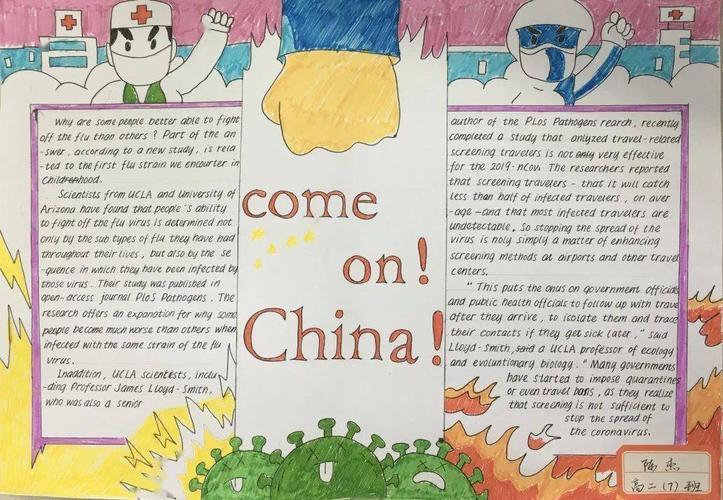 Why are some people better able to fight
off the flu than others? Part of the an
-swer, according to a new study, is rela
-ted to the first flu strain we encourter in
Childrenhood.
Scientists from UCLA and University of
Arizona have found that people's ability
to fight off the flu virus is determined not
only by the sub types of flu they have had
throughout their lives, but also by the se
-quence in which they have been infected by
those virus. Their study was published in
open-access journal Plos Pathogens. The
research offers an expanation for why some
people become much worse than others when
infected with the same strain of the flu
virus.
Inaddition, UCLA scientists, inclu
-ding Professor James Lloyd-Smith,
who was also a senior
come
on!
China!
author of the PLos Pathogens rearch, recently
completed a study that anlyzed travel-related
screening travelers is not only very effective
for the 2019-nCov. The researchers reported
that screening travelers - that it will catch
less than half of infected travelers, on aver
-age - and that most infected travelers are
undetectable. So stopping the spread of the
virus is noly simply a matter of enhancing
screening methods at airports and other travel
centers.
"This puts the onus on government officials
and public health offcials to follow up with trave
after they arrive, to isolate them and trace
their contacts if they get sick later," said
Lloyd-Smith, said a UCLA professor of ecology
and evoluntionary biology. "Many governments
have started to impose quarantines
or even travel bans, as they realize
that screening is not sufficient to
stop the spread of
the coronavirus.
高二(7)班